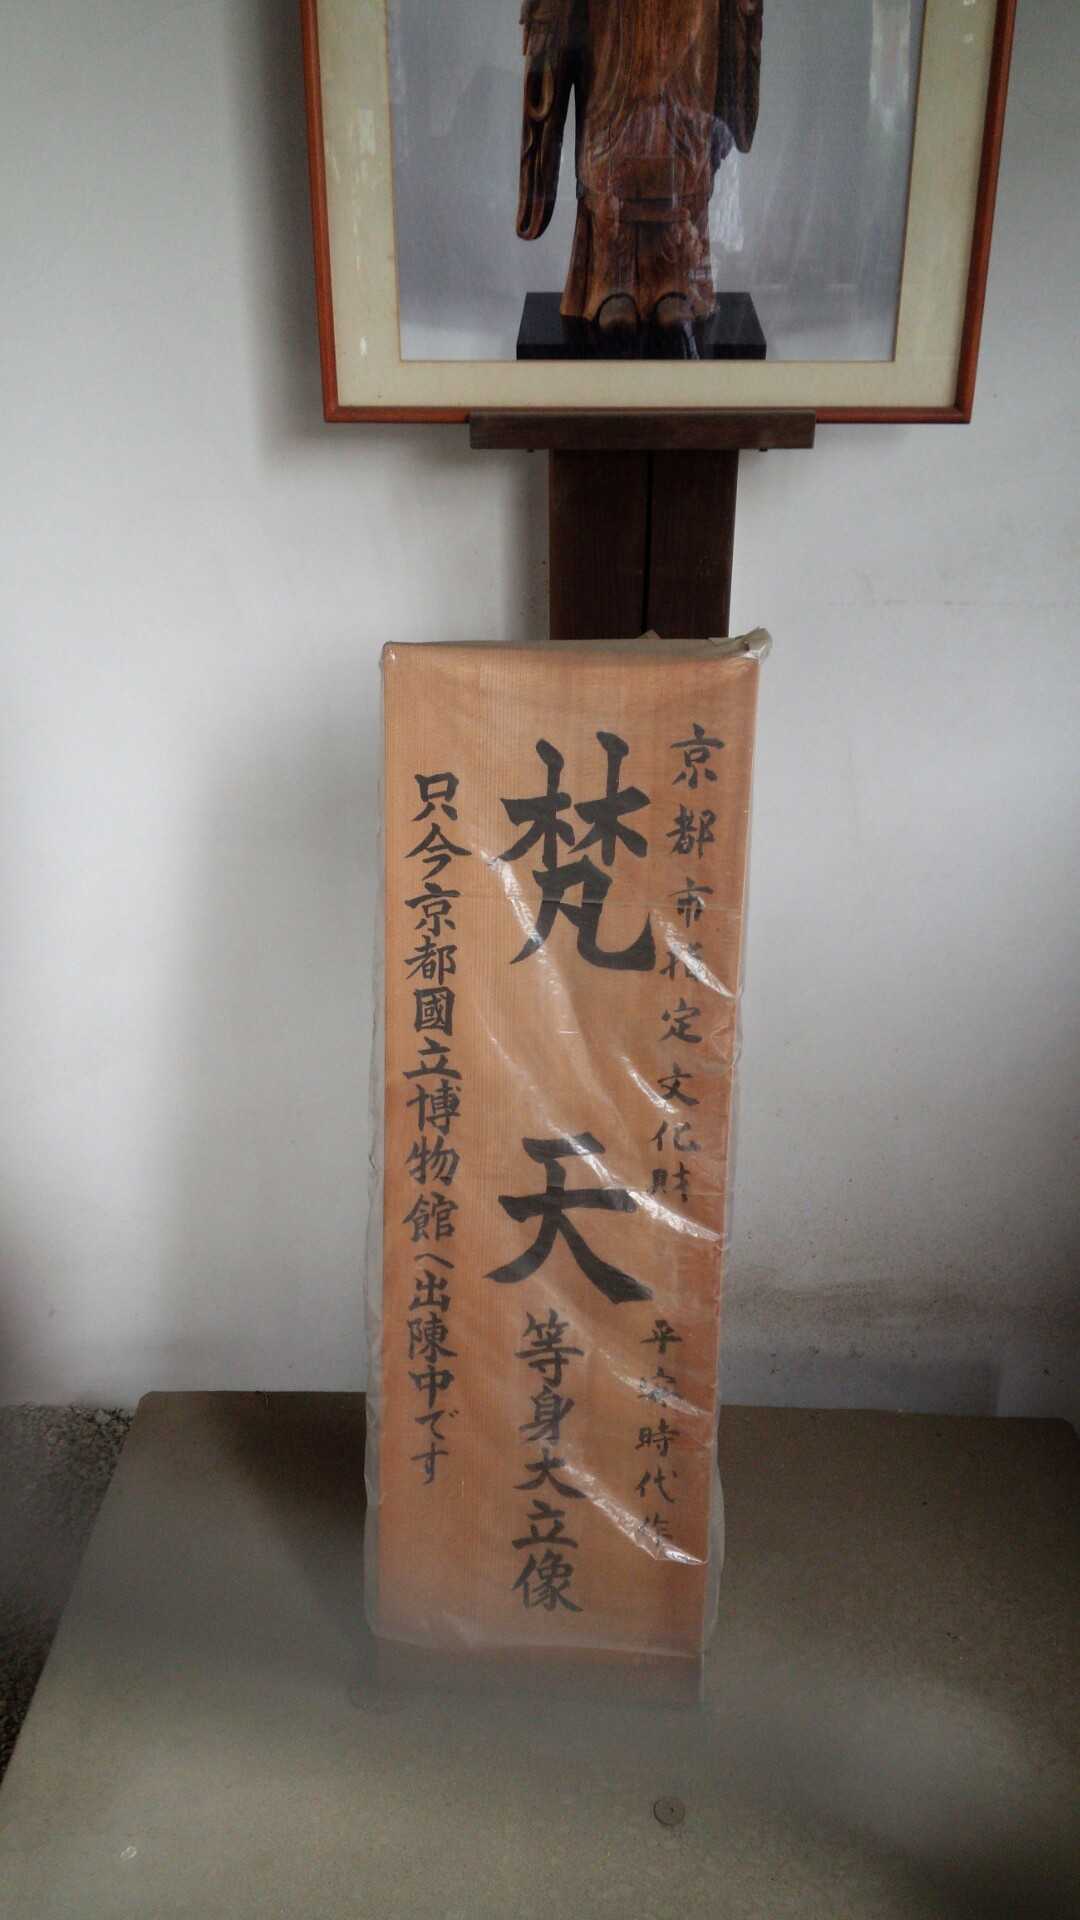 京都市指定文化財 平安時代作
梵天 等身大立像
只今京都國立博物館へ出陳中です